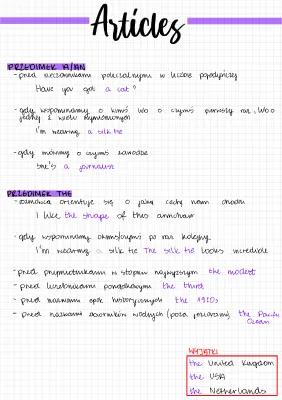 Articles
PRZEDIMEK A/AN
- przed rzeczownikami policzalnymi w liczbie pojedynczej
Have you got a cat?
- gdy wspominamy o kimś lub o czymś pierwszy raz, lub o
jednej z wielu wymienionych
I'm wearing a silk tie
- gdy mówimy o czyimś zawodzie
She's a journalist
PRZEDIMEK THE
- rozmówca orientuje się o jaką cechę nam chodzi
I like the shape of this armchair
- gdy wspominamy o kimś/czymś po raz kolejny
I'm wearing a silk tie The silk tie looks incredible
- przed przymiotnikami w stopniu najwyższym the modest
- przed liczebnikami porządkowymi the third
- przed nazwami epok historycznych the 1910s
- przed nazwami zbiorników wodnych (poza jeziorami) the Pacific
Ocean
WYJĄTKI
the United Kingdom
the USA
the Netherlands